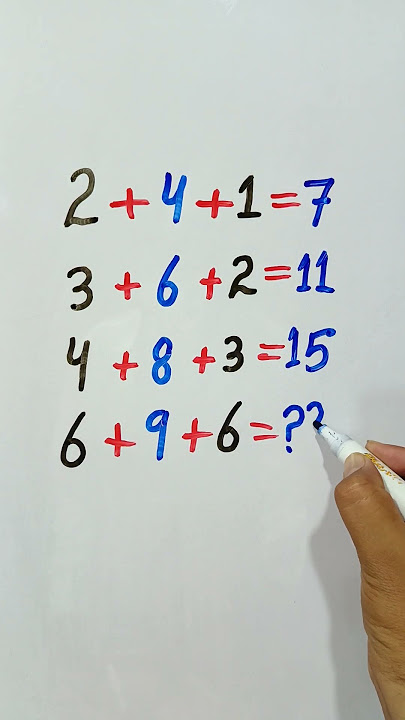 2 + 4 + 1 = 7
3 + 6 + 2 = 11
4 + 8 + 3 = 15
6 + 9 + 6 = ??